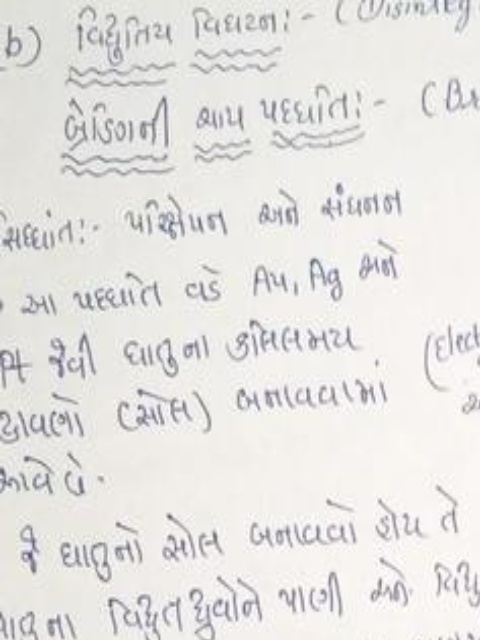 b) વિદ્યુતિય વિઘટન:- (Disinteg
બ્રેડિગની ચાપ પધ્ધતિ:- (Br
સિધ્ધાંત:- પરિક્ષેપન અને સંઘનન
આ પધ્ધતિ વડે Au, Ag અને
Pt જેવી ધાતુના કલિલમય (Elect
દ્રાવણો (સોલ) બનાવવામાં
આવે છે.
જે ધાતુનો સોલ બનાવવો હોય તે
ધાતુના વિદ્યુત ધ્રુવોને પાણી અને વિદ્યુ